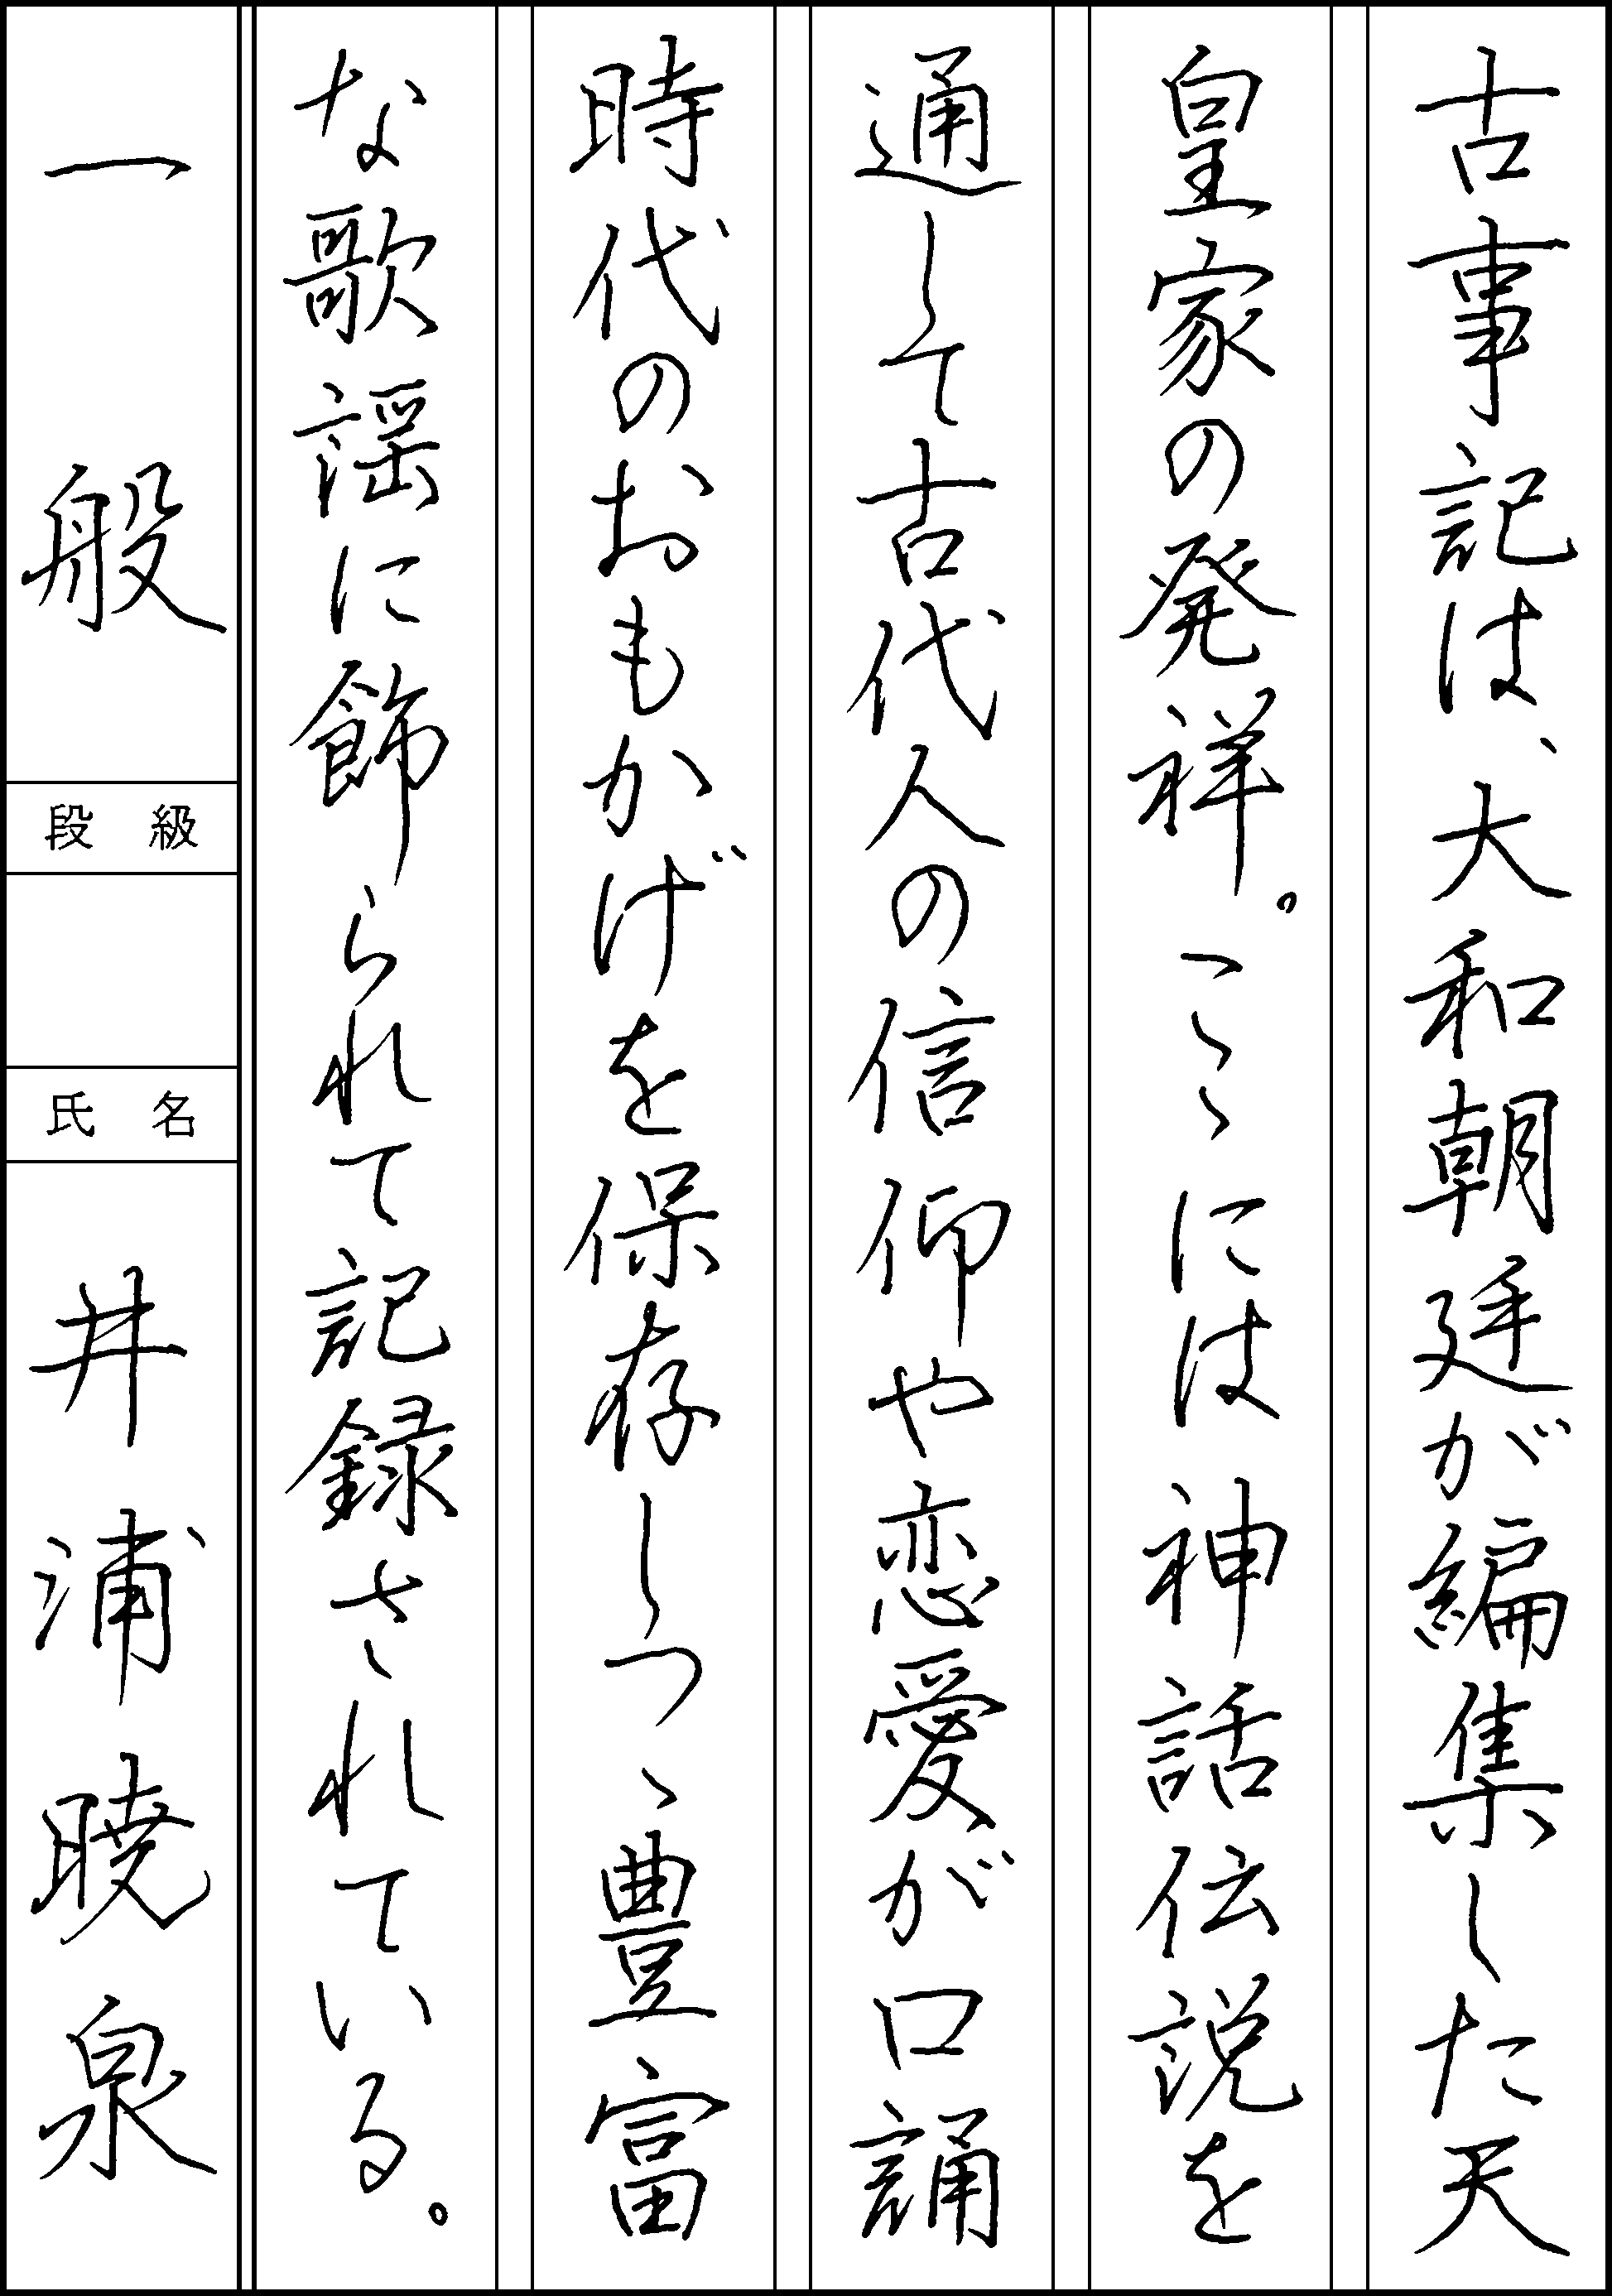 古事記は、大和朝廷が編集した天
皇家の発祥。こゝには神話伝説を
通して古代人の信仰や恋愛が口誦
時代のおもかげを保存しつゝ豊富
な歌謡に飾られて記録されている。
一般
段級
氏名
井浦暁泉